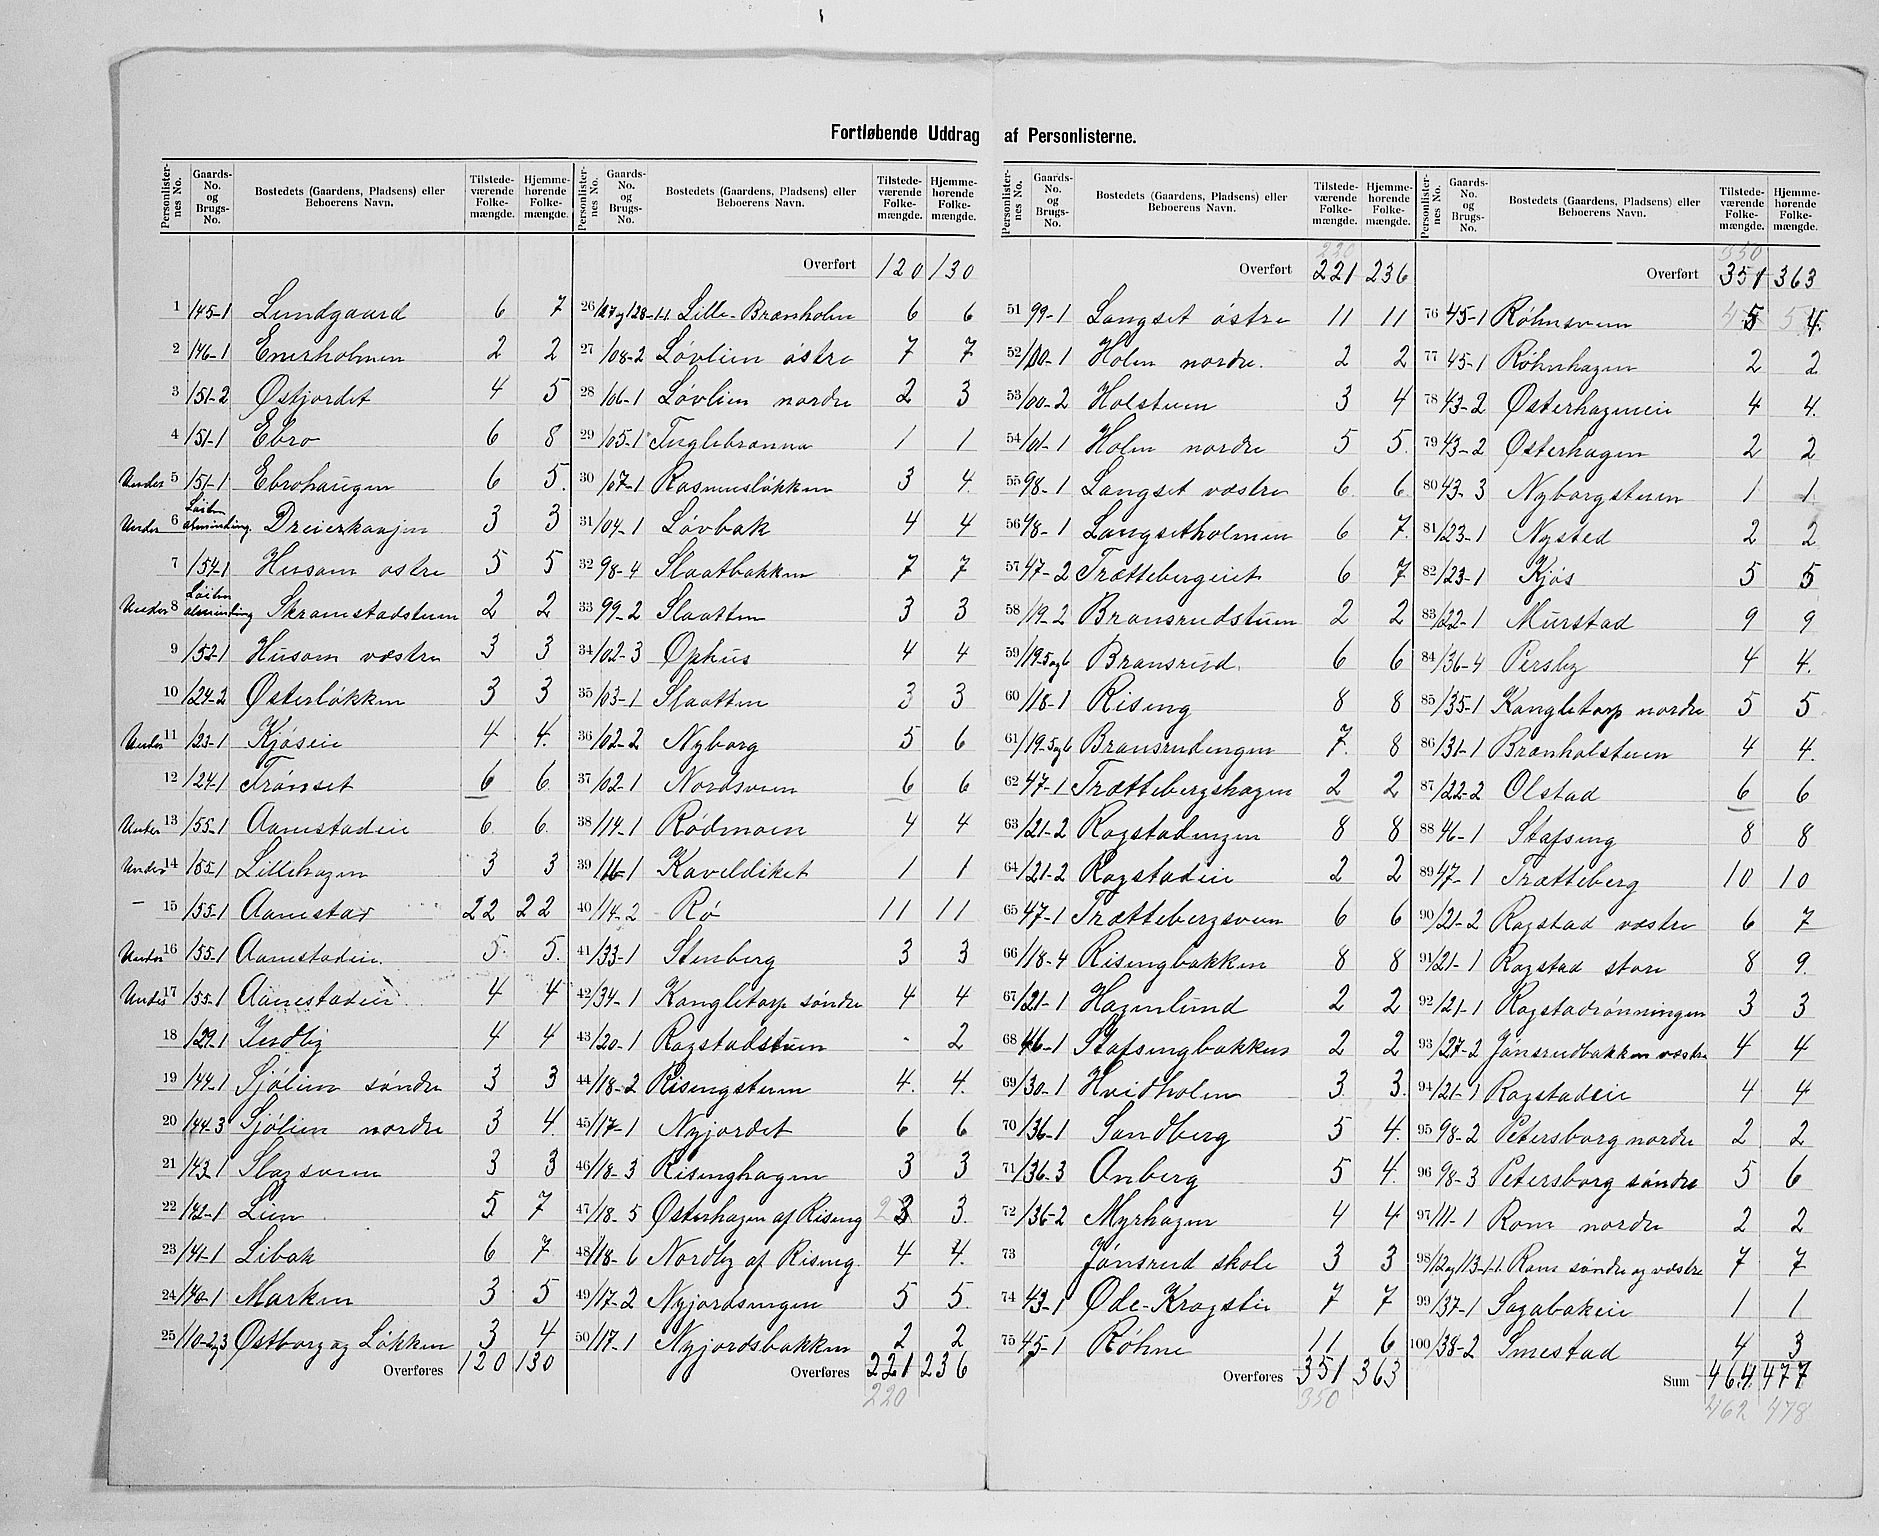 Fortløbende Uddrag af Personlisterne.
Personlisternes No. Gaards-No. og Brugs-No. Bostedets (Gaardens, Pladsens) eller Beboerens Navn. Tilstedeværende Folkemængde. Hjemmehørende Folkemængde.
1 145-1 Lundgaard 6 7
2 146-1 Enerholmen 2 2
3 151-2 Østjordet 4 5
4 151-1 Ebro 6 8
Under 5 151-1 Ebrohaugen 6 5.
Under 6 Løiten alminding Dreierkaajen 3 3
7 154-1 Husom østre 5 5
Under 8 Løiten alminding Skramstadstuen 2 2
9 152-1 Husom vestre 3 3
10 124-2 Østerløkken 3 3
Under 11 123-1 Kjøseie 4 4.
12 124-1 Trønset 6 6
Under 13 155-1 Aamestadeie 6. 6.
Under 14 155-1 Lillehagen 3 3
– 15 155-1 Aamestad 22 22
Under 16 155-1 Aamestadeie. 5. 5.
Under 17 155-1 Aamestadeie 4 4
18 129-1 Indby 4 4
19 144-1 Sjølien søndre 3 3
20 144-3 Sjølien nordre 3 4.
21 143-1 Slagsveen 3 3
22 142-1 Lien 5 7
23 141-1 Libak 6 7
24 140-1 Marken 3 5
25 110-2og3 Østborg og Løkken 3 4
Overføres 120 130
Personlisternes No. Gaards-No. og Brugs-No. Bostedets (Gaardens, Pladsens) eller Beboerens Navn. Tilstedeværende Folkemængde. Hjemmehørende Folkemængde.
Overført 120 130
26 127og128-1-1 Lille-Brænholen 6 6
27 108-2 Løvlien østre 7 7
28 106-1 Løvlien nordre 2 3
29 105-1 Fuglebrænna 1 1
30 107-1 Rasmusløkken 3 4.
31 104-1 Løvbak 4 4
32 98-4 Slaatbakken 7 7
33 99-2 Slaatten 3 3
34 102-3 Ophus 4 4
35 103-1 Slaatten 3 3
36 102-2 Nyborg 5 6
37 102-1 Nordsveen 6 6
38 114-1 Rødmoen 4 4
39 116-1 Kaveldiket 1 1
40 114-2 Rø 11 11
41 133-1 Stenberg 3 3
42 134-1 Kongletorp søndre 4 4
43 120-1 Ragstadstuen - 2
44 118-2 Risengstuen 4. 4.
45 117-1 Nyjordet 6 6
46 118-3 Risenghagen 3 3
47 118-5 Østerhagen af Riseng 2 3 3.
48 118-6 Nordby af Riseng. 4 4.
49 117-2 Nyjordsengen 5 5.
50 117-1 Nyjordsbakken 2 2
Overføres 221 236
220
Personlisternes No. Gaards-No. og Brugs-No. Bostedets (Gaardens, Pladsens) eller Beboerens Navn. Tilstedeværende Folkemængde. Hjemmehørende Folkemængde.
220
Overført 221 236
51 99-1 Langset østre 11 11
52 100-1 Holen nordre. 2 2
53 100-2 Holstuen 3 4
54 101-1 Holen nordre 5 5.
55 98-1 Langset vestre 6 6
56 98-1 Langsetholmen 6 7.
57 47-2 Trættebergeiet 6 7
58 119-2 Bransrudstuen 2 2
59 119-5og6 Bransrud. 6 6
60 118-1 Riseng 8 8
61 119-5og6 Bransrudengen 7. 8
62 47-1 Trættebergshagen 2 2
63 121-2 Ragstadengen 8 8
64 121-2 Ragstadeie 2 2
65 47-1 Trættebergsveen 6 6
66 118-4 Risengbakken 8 8
67 121-1 Hagenlund 2 2
68 46-1 Stafsengbakken 2 2
69 130-1 Hvidholen 3. 3.
70 136-1 Sandberg 5 4.
71 136-3 Anberg 5 4.
72 136-2 Myrhagen 4 4
73 Jønsrud skole 3 3
74 43-1 Øde-Kragstie 7 7
75 45-1 Røhne 11 6
Overføres 351 363
350
Personlisternes No. Gaards-No. og Brugs-No. Bostedets (Gaardens, Pladsens) eller Beboerens Navn. Tilstedeværende Folkemængde. Hjemmehørende Folkemængde.
350
Overført 351 363
76 45-1 Røhnsveen 4 5 5 4.
77 45-1 Røhnhagen 2 2
78 43-2 Østerhageneie 4 4.
79 43-2 Østerhagen 2 2
80 43-3 Nyborgstuen 1 1
81 123-1 Nysted 2 2
82 123-1 Kjøs 5 5
83 122-1 Murstad 9 9
84 136-4 Persby 4 4.
85 135-1 Kongletorp nordre 5 5
86 131-1 Brænholstuen 4 4.
87 122-2 Olstad 6 6
88 46-1 Stafseng 8 8
89 47-1 Trætteberg 10 10
90 121-2 Ragstad vestre 6 7
91 121-1 Ragstad store 8 9.
92 121-1 Ragstadrønningen 3 3
93 127-2 Jønsrudbakken vestre 4 4
94 121-1 Ragstadeie 4 4
95 98-2 Petersborg nordre 2 2
96 98-3 Petersborg søndre 5 6
97 111-1 Rom nordre 2 2
98 112og113-1-1. Rom søndre og vestre 7 7
99 137-1 Sagabakeie 1 1
100 138-2 Smestad 4 3
Sum 464 477
462 478